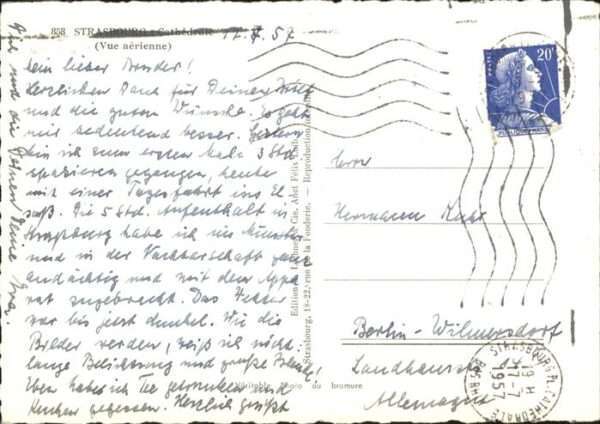 858 STRASBOURG - Cathédrale
(Vue aérienne)
17.7.57
Mein lieber Bruder!
Herzlichen Dank für Deinen Brief
und die guten Wünsche. Es geht
mir bedeutend besser. Gestern
bin ich zum ersten Male 3 Std.
spazieren gegangen, heute
mit einer Tagesfahrt ins El-
saß. Die 5 Std. Aufenthalt in
Straßburg habe ich im Münster
und in der Nachbarschaft ganz
andächtig und mit dem Appa-
rat zugebracht. Das Wetter
war bis jetzt dunkel. Wie die
Bilder werden, weiß ich nicht,
lange Belichtung und große Blende!
Eben habe ich Tee getrunken und
Kuchen gegessen. Herzlich grüßt
Dich und die Deinen Deine
Strasbourg, 18-22, rue de la Fonderie. - Reproduction
Véritable photo au bromure
20F
Herrn
Hermann Kuhr
Berlin-Wilmersdorf
Landhausstr.
Allemagne
STRASBOURG PL. CATHÉDRALE
19 H
17-7
1957
BAS RHIN